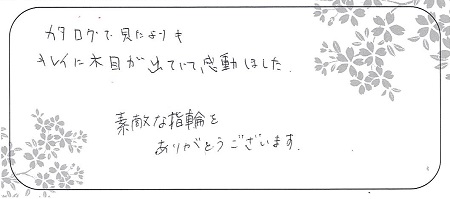 カタログで見たよりも
キレイに木目が出ていて、感動しました.
素敵な指輪を
ありがとうございます.